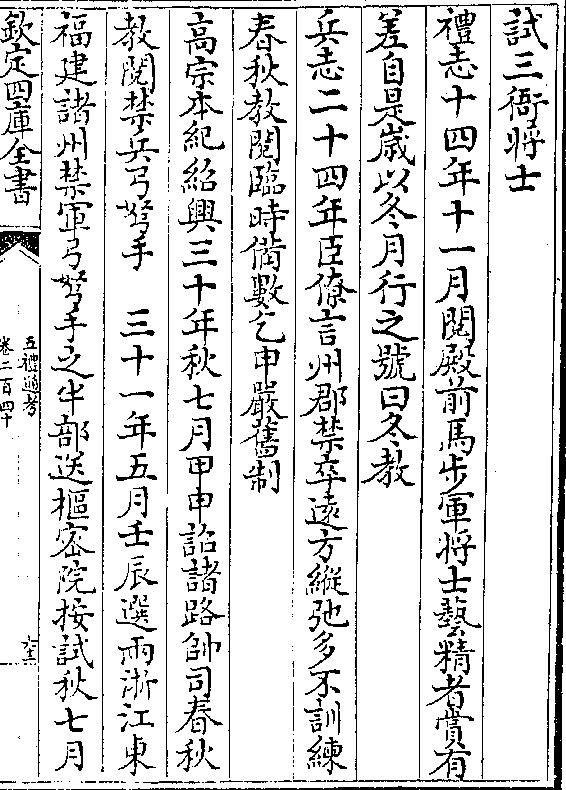 試三衙將士
禮志十四年十一月閱殿前馬步軍將士藝精者賞有
差自是歲以冬月行之號曰冬教
兵志二十四年臣僚言州郡禁卒遠方縱弛多不訓練
春秋教閱臨時備數乞申嚴舊制
高宗本紀紹興三十年秋七月甲申詔諸路帥司春秋
教閱禁兵弓弩手　三十一年五月壬辰選兩浙江東
福建諸州禁軍弓弩手之半部送樞密院按試秋七月
欽定四庫全書
五禮通考
卷二百四十